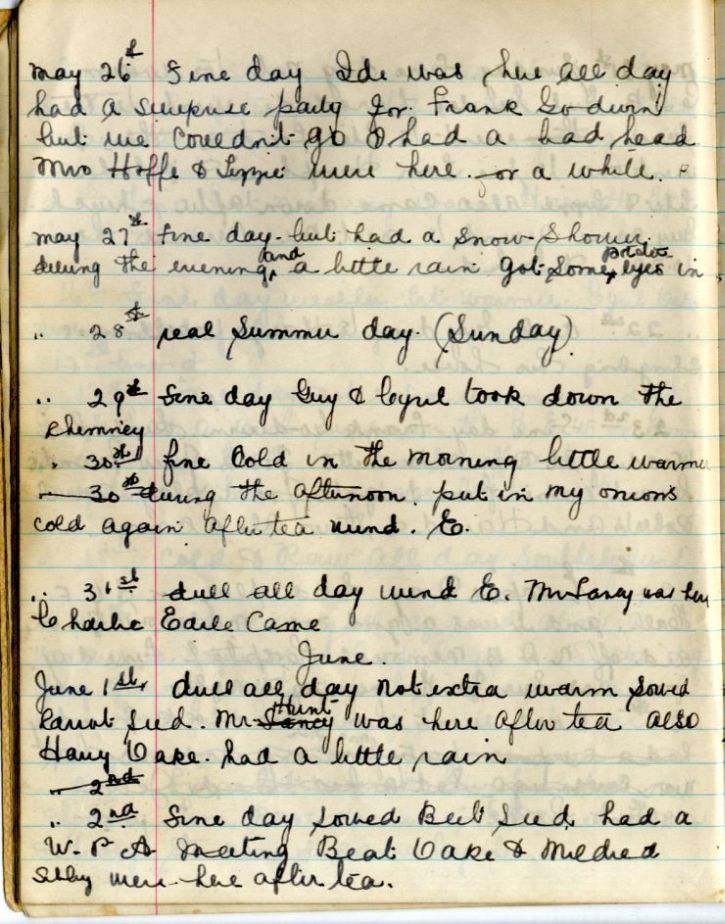 May 26th Fine day Ide was here all day
had a surprise party for Frank Godwin
but we couldn't go I had a bad head
Mrs Hoffe & Lizzie were here for a while.
May 27th Fine day but had a snow shower
during the evening and a little rain got some potatoe eyes in
" 28th real Summer day. (Sunday)
" 29th Fine day Guy & Cyril took down the
Chemney
" 30th fine Cold in the morning little warmer
" 30th during the afternoon. put in my onions
cold again after tea wind. E.
" 31st dull all day wind E. Mr Lancy was here
Charlie Earle Came
June.
June 1st, dull all day not extra warm sowed
Carrot Seed. Mr Lancy Hunt was here after tea also
Harry Oake. had a little rain
" 2nd
" 2nd Fine day sowed Beet Seed, had a
W. P. A meeting Beat Oake & Mildred
were here after tea.